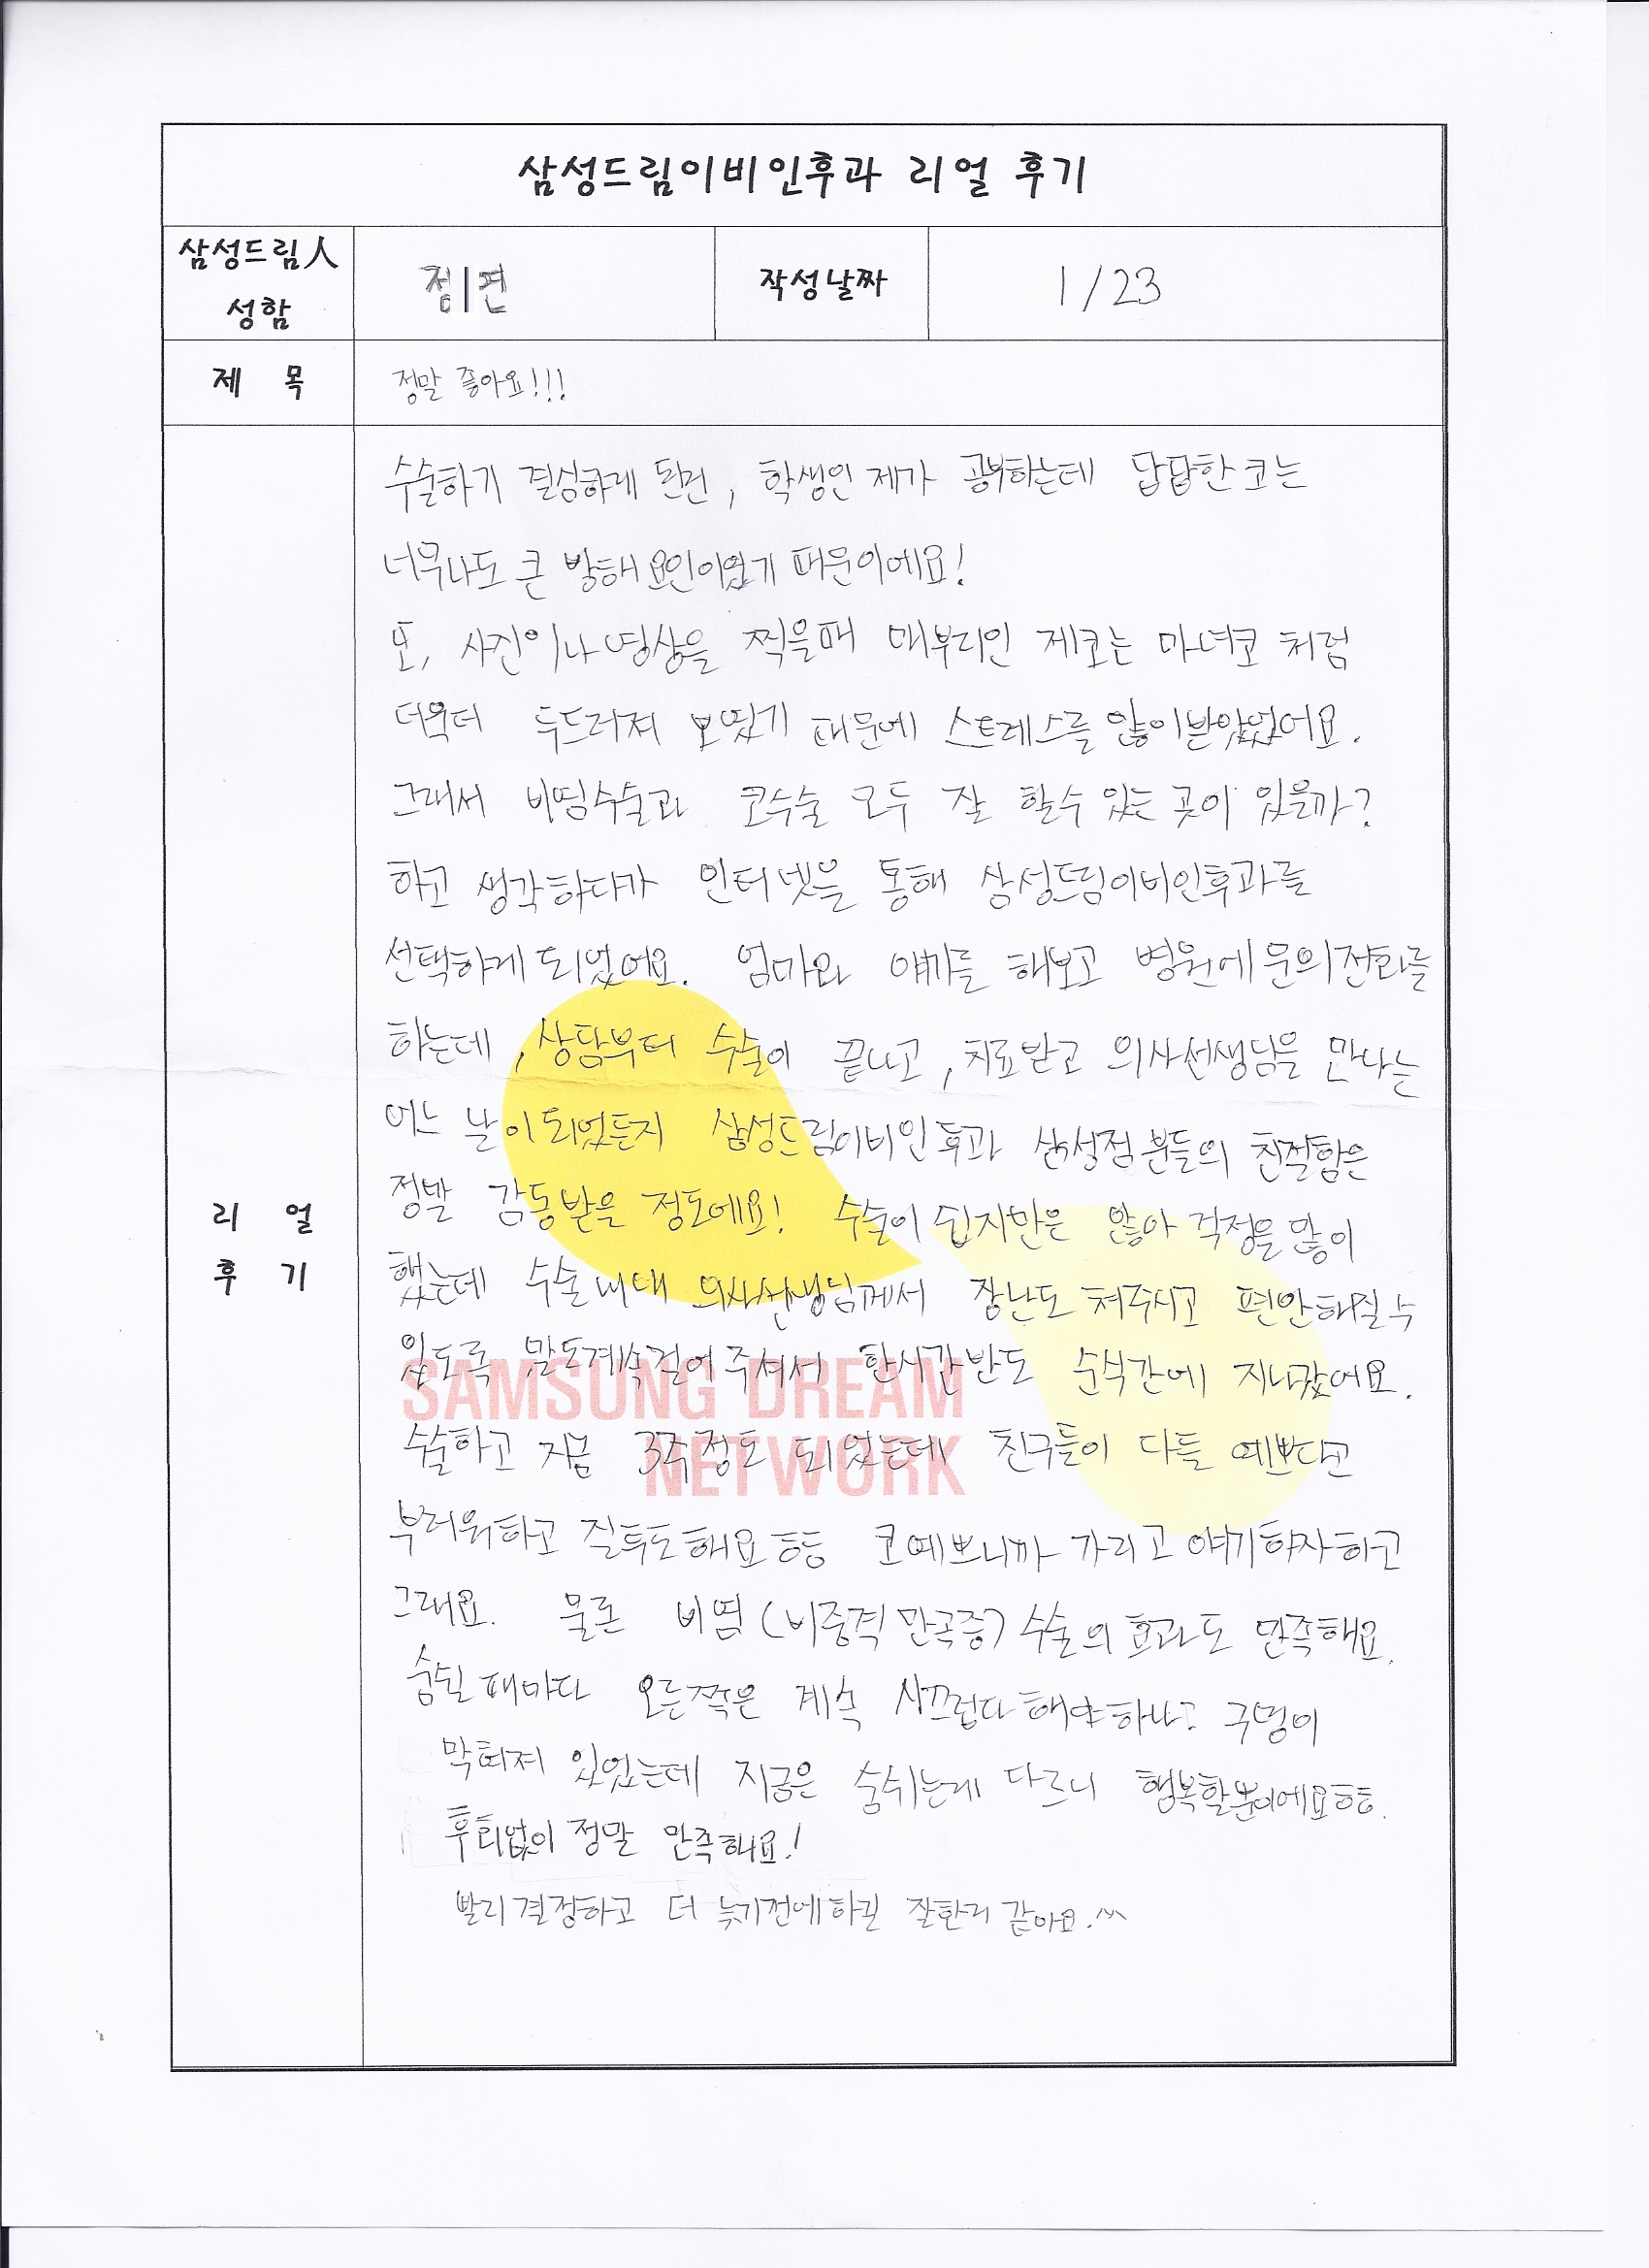 삼성드림이비인후과 리얼 후기
삼성드림人
성함
정 편
작성날짜
1/23
제 목
정말 좋아요!!!
리 얼
후 기
수술하기 결심하게 된건, 학생인 제가 공부하는데 답답한 코는
너무나도 큰 방해요인이었기 때문이에요!
또, 사진이나 영상을 찍을때 매부리인 제코는 마녀코 처럼
더욱더 두드러져 보였기 때문에 스트레스를 많이받았었어요.
그래서 비염수술과 코수술 모두 잘 할수 있는 곳이 있을까?
하고 생각하다가 인터넷을 통해 삼성드림이비인후과를
선택하게 되었어요. 엄마와 얘기를 해보고 병원에 문의전화를
하는데, 상담부터 수술이 끝나고, 치료받고 의사선생님을 만나는
어느 날이 되었든지 삼성드림이비인후과 삼성점분들의 친절함은
정말 감동받을 정도에요! 수술이 쉽지만은 않아 걱정을 많이
했는데 수술내내 의사선생님께서 장난도 쳐주시고 편안해질수
있도록 말도계속걸어주셔서 한시간반도 순식간에 지나갔어요.
수술하고 지금 3주정도 되었는데 친구들이 다들 예쁘다고
부러워하고 질투도해요ㅎㅎ 코예쁘니까 가리고 얘기하자하고
그래요. 물론 비염(비중격 만곡증) 수술의 효과도 만족해요.
숨쉴때마다 오른쪽은 계속 시끄럽다해야하나? 구멍이
막혀져 있었는데 지금은 숨쉬는게 다르니 행복할뿐이에요ㅎㅎ.
후회없이 정말 만족해요!
빨리결정하고 더 늦기전에하길 잘한거 같아요.^^
SAMSUNG DREAM
NETWORK